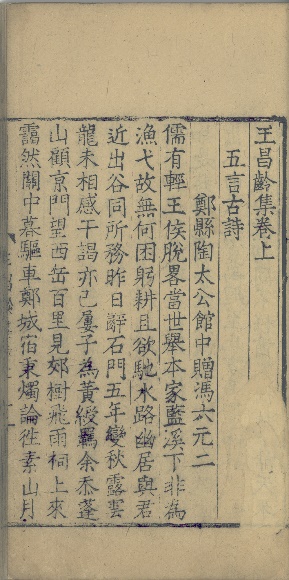 王昌齡集卷上
五言古詩
鄭縣陶太公館中贈馮六元二
儒有輕王侯脫畧當世舉本家藍溪下非為
漁弋故無何困躬耕且欲馳永路幽居與君
近出谷同所務昨日辭石門五年變秋露雲
龍未相感干謁亦已屢子為黃綬羈余忝蓬
山顧京門望西岳百里見郊樹飛雨祠上來
靄然關中暮驅車鄭城宿秉燭論徃素山月